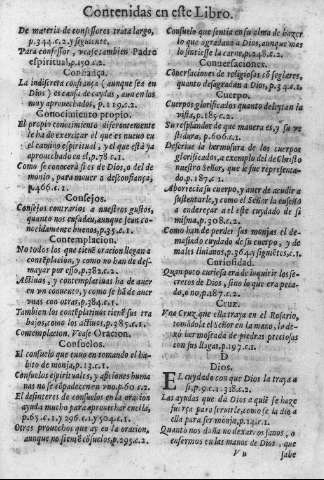 Contenidas en este Libro.
De materia de confessores trata largo,
p.344.c.2.y siguiente.
Para confessor, vease tambien Padre
espiritual,p.150.c.2.
Confiança.
La indiscreta confiança (aunque sea en
Dios) es casa de caydas, aun en los
muy aprovechados, p.119.c.2.
Conocimiento propio.
El propio conocimiento discretamente
le ha de exercitar el que es nuevo en
el camino espiritual, y el que está ya
aprovechado en el,p.78.c.1.
Como se conocerá si es de Dios,o del de
monio, para mover a desconfiança,
p.466.c.1.
Consejos.
Consejos contrarios a nuestros gustos,
quanto nos enfadan,aunque sean cono
cidamente buenos,p.35.c.1.
Contemplacion.
No todos los que tienẽ oracion llegan a
contẽplacion, y como no han de des-
mayar por ello,p.282.c.2.
Activas, y contemplativas ha de aver
en un convento, y como se hã de aver
unas con otras,p.384.c.1.
Tambien los contẽplativos tienẽ sus tra
bajos,como los activos,p.285.c.1.
Contemplacion. Vease Oracion.
Consuelos.
El consuelo que tuvo en tomando el ha-
bito de monja,p.13.c.1.
Consuelos espirituales, y aficiones huma
nas no se cõpadecen en uno,p.60.c.2.
El desinteres de consuelos en la oracion
ayuda mucho para aprovechar en ella,
p.65.c.1.y 296.c.1.y 504.c.1.
Otros provechos que ay en la oracion,
aunque no siẽtẽ cõsuelos,p.295.c.2.
Consuelo que sentia en su alma de hazer
lo que agradava a Dios, aunque mas
lo sintiesse la carne,p.248.c.2.
Conversaciones.
Cõversaciones de religiosas cõ seglares,
quanto desagradan a Dios,p.34.c.1.
Cuerpo.
Cuerpos glorificados quanto deleytan la
vista,p.185.c.2.
Su resplandor de que manera es, y su ve
stidura, p.606.c.1.
Descrivese la hermosura de los cuerpos
glorificados,a exemplo del de Christo
nuestro Señor, que le fue representa-
do,p.187.c.2.
Aborrecia su cuerpo, y aver de acudir a
sustentarle, y como el Señor la enseñó
a enderezar a el este cuydado de si
misma, p.308.c.2.
Como han de perder las monjas el de-
masiado cuydado de su cuerpo, y de
males livianos, p.364.y siguiẽtes,c.1.
Curiosidad.
Quan poco curiosa era de inquirir los se-
cretos de Dios, sino lo que era peca-
do, o no,p.187.c.2.
Cruz.
Una Cruz que ella traya en el Rosario,
tomãdola el Señor en la mano, la de-
xó hermoseada de piedras preciosas
con sus llagas,p.197.c.1.
D
Dios.
EL cuydado con que Dios la traya a
si,p.9.c.1.-338.c.2.
Las ayudas que dà Dios a quiẽ se haze
fuerça para servirle,como se la dio a
ella para ser monja,p.14.c.1.
Quanto nos daña no dexar los sanos, o
enfermos en las manos de Dios, que
Vu sabe